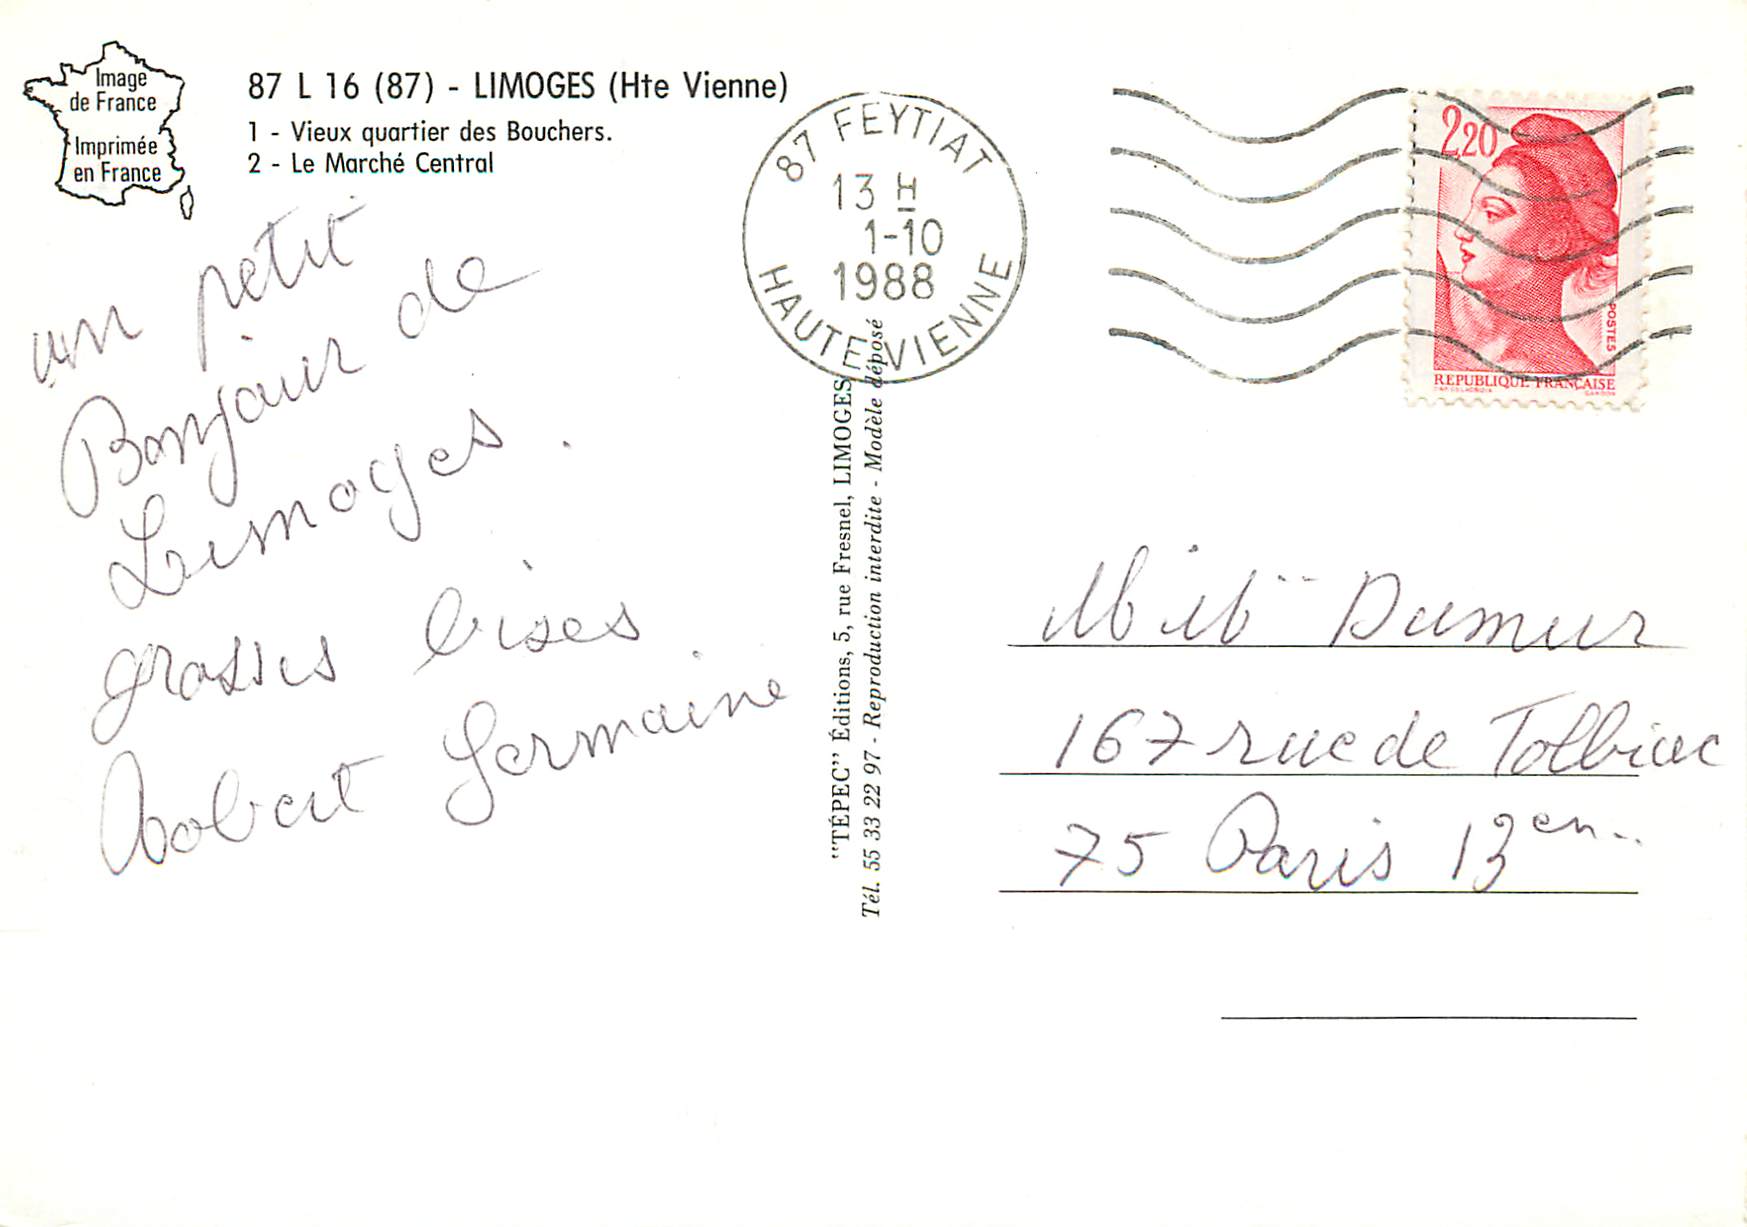 Image
de France
Imprimée
en France
87 L 16 (87) - LIMOGES (Hte Vienne)
1 - Vieux quartier des Bouchers.
2 - Le Marché Central
un petit
Bonjour de
Limoges.
grosses bises
Robert Germaine
"TÉPEC" Éditions, 5, rue Fresnel, LIMOGES
Tél. 55 33 22 97 - Reproduction interdite - Modèle déposé
87 FEYTIAT
13 H
1-10
1988
HAUTE VIENNE
2,20
POSTES
REPUBLIQUE FRANÇAISE
Dumur
167 rue de Tolbiac
75 Paris 13en